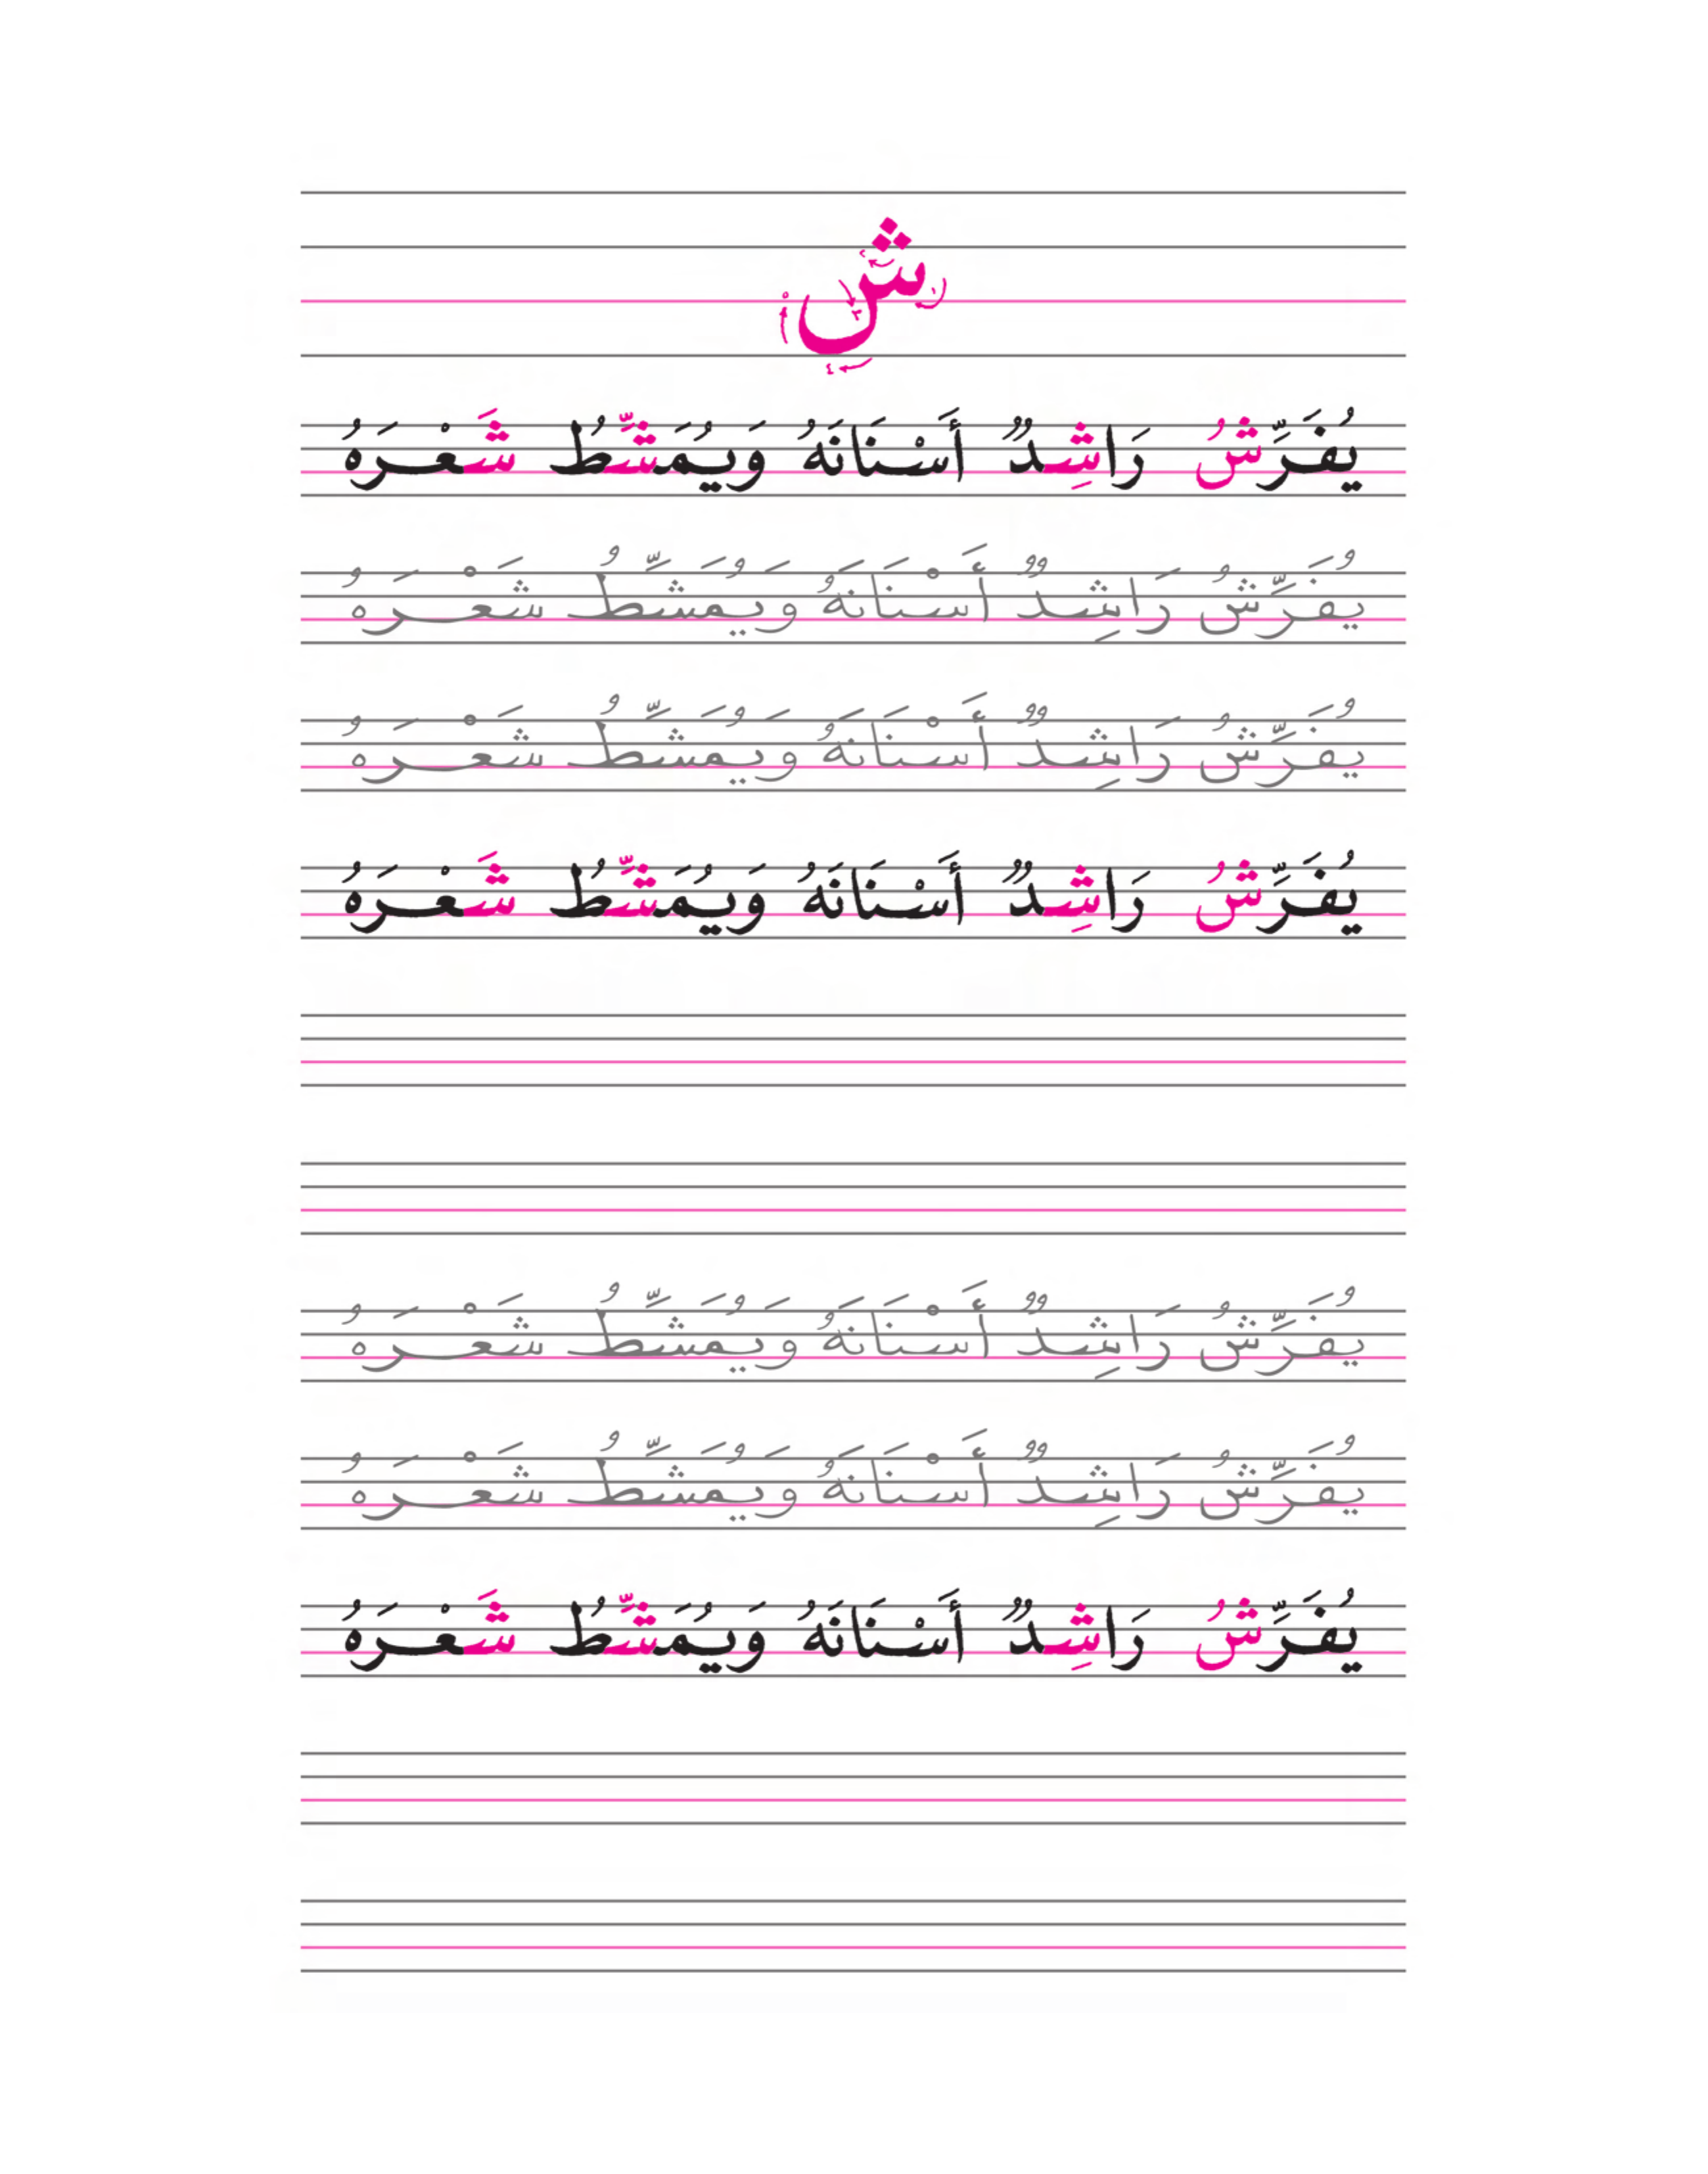 ش
١ ٢ ٣ ٤ ٥
يُفَرِّشُ رَاشِدٌ أَسْنَانَهُ وَيُمَشِّطُ شَعْرَهُ
يُفَرِّشُ رَاشِدٌ أَسْنَانَهُ وَيُمَشِّطُ شَعْرَهُ
يُفَرِّشُ رَاشِدٌ أَسْنَانَهُ وَيُمَشِّطُ شَعْرَهُ
يُفَرِّشُ رَاشِدٌ أَسْنَانَهُ وَيُمَشِّطُ شَعْرَهُ
يُفَرِّشُ رَاشِدٌ أَسْنَانَهُ وَيُمَشِّطُ شَعْرَهُ
يُفَرِّشُ رَاشِدٌ أَسْنَانَهُ وَيُمَشِّطُ شَعْرَهُ
يُفَرِّشُ رَاشِدٌ أَسْنَانَهُ وَيُمَشِّطُ شَعْرَهُ